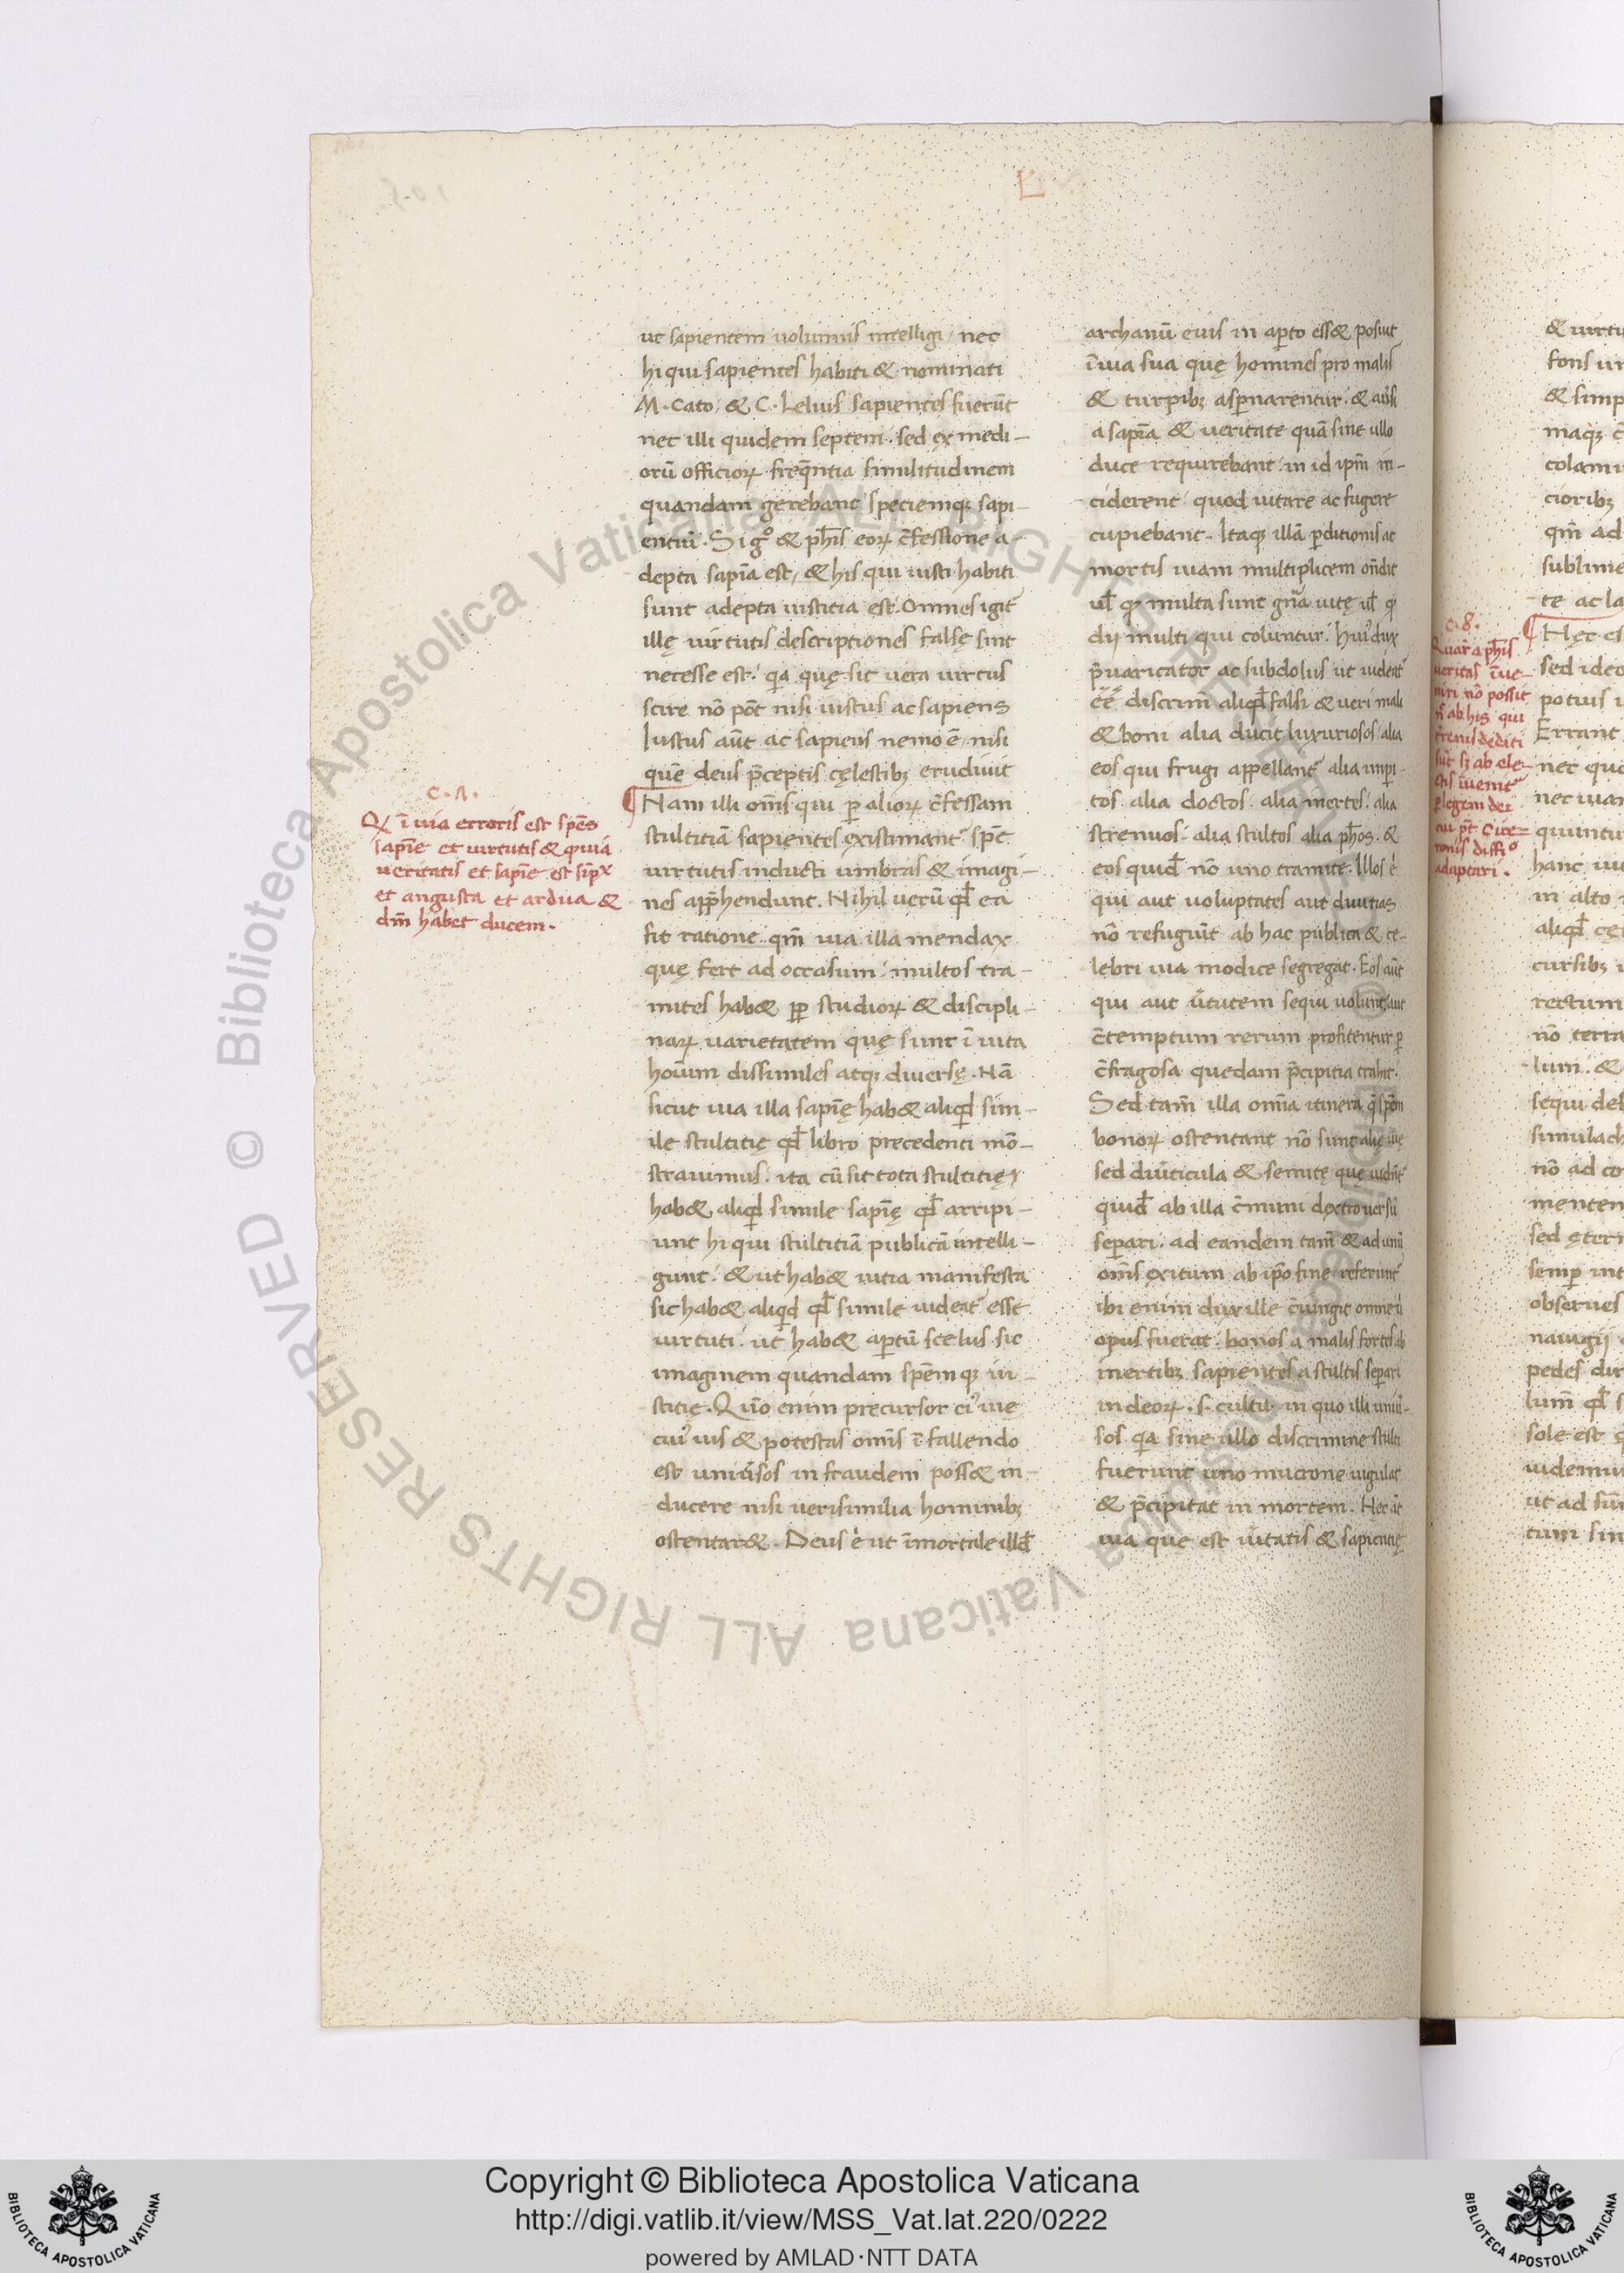 ut sapientem uolumus intelligi / nec
hi qui sapientes habiti & nominati
M. Cato, & C. Lelius sapientes fuerūt
nec illi quidem septem. sed ex medi-
orū officioꝝ freq̄ntia similitudinem
quandam gerebant speciemqꝫ sapi-
entiū. Si gͦ & ph̄is eoꝝ c̄fessione a-
depta sapīa est, & his qui iusti habiti
sunt adepta iustitia est. Omnes igit̄
illę uirtutis descriptiones falsę sint
necesse est. q̄a quę sit uera uirtus
scire nō pōt nisi iustus ac sapiens
Iustus aūt ac sapiens nemo ē, nisi
quē deus p̄ceptis cęlestibꝫ erudiuit
C. .
Qꝫ ī uia erroris est spēs
sapīe et uirtutis & quia
ueritatis et sapīe est sīpx
et angusta et ardua &
dm̄ habet ducem.
Nam illi om̄s qui ꝑ alioꝝ c̄fessam
stultitiā sapientes existimant̄ spē
uirtutis inducti umbras & imagi-
nes app̄hendunt. Nihil uerū qd̄ ea
fit ratione qm̄ uia illa mendax
quę fert ad occasum. multos tra-
mites hab& ꝓꝑ studioꝝ & discipli-
naꝝ uarietatem quę sunt ī uita
hoīum dissimiles atqꝫ diuersę. Nā
sicut uia illa sapīę hab& aliqd̄ sim-
ile stultitię qd̄ libro precedenti mō-
strauimus. ita cū sit tota stultitię,
hab& aliqd̄ simile sapīę qd̄ arripi-
unt hi qui stultitiā publicā intelli-
gunt. & ut hab& uitia manifesta
sic hab& aliqd̄ qd̄ simile uideat̄ esse
uirtuti. ut hab& aꝑtū scelus. sic
imaginem quandam spēm qꝫ iu-
stitię. Quō enim precursor ei' uię
cui' uis & potestas om̄is ī fallendo
est uniūsos in fraudem poss& in-
ducere nisi uerisimilia hominibꝫ
ostentar&. Deus .ē. ut īmortale illd̄
archanū eius in aꝑto ess& posuit
ī uia sua quę homines pro malis
& turpibꝫ asꝑnarentur. & auīsi
a sapīa & ueritate quā sine ullo
duce requirebant. in id ipm̄ in-
ciderent. quod uitare ac fugere
cupiebant. Itaqꝫ illā ꝑditionis ac
mortis uiam multiplicem on̄dit
ul̄ qꝫ multa sunt gn̄a uitę ul̄ qꝫ
dij multi qui coluntur. hui' dux
p̄uaricator ac subdolus ut uideat̄
ēē discrim̄ aliqd̄ falsi & ueri mali
& boni alia ducit luxuriosos alia
eos qui frugi appellant̄ alia imꝑi-
tos. alia doctos. alia inertes. alia
strenuos. alia stultos alia ph̄os. &
eos quid̄ nō uno tramite. Illos .ē.
qui aut uoluptates aut diuitias
nō refugiūt ab hac publica & ce-
lebri uia modice segregat. Eos aūt
qui aut ūtutem sequi uolunt, aut
c̄temptum rerum profitentur ꝑ
c̄fragosa quedam p̄cipitia trahit.
Sed tam̄ illa omīa itinera q̄ spēm
bonoꝝ ostentant nō sunt alię uię
sed diūticula & semitę quę uidēt̄
quid̄ ab illa c̄muni dextrouersū
separi. ad eandem tam̄ & ad unū
om̄s exitum ab ip̄o fine referunt̄
ibi enim dux ille c̄iungit omnes ū
opus fuerat. bonos a malis fortes ab
inertibꝫ sapientes a stultis separi
in deoꝝ .s. cultu. in quo illi uniū-
sos q̄a sine ullo discrimine stulti
fuerunt uno mucrone iugulat
& p̄cipitat in mortem. Hec āt
uia que est ūitatis & sapientię
C. 8.
Quare a ph̄is
ueritas īue-
niri nō possit
n̄ ab his qui
terrenis dediti
sūt sꝫ ab ele-
ctis īuenit̄
ꝑ legem dei
cui pt̄ Cice-
ronis diffīo
adaptari.
fons
& simp
colam
cioribꝫ
qm̄ ad
sublime
te ac la
Hęc es
sed ideo
potius
Errant
nec quo
hanc
in alto
aliqd̄
cursibꝫ
rectum
nō terra
lum. &
sequi
simulach
nō ad
mentem
sed ętern
semꝑ int
obserues
nauigij
pedes
lum̄ qd̄
sole est
uidemu
ut ad
tum
Copyright © Biblioteca Apostolica Vaticana
http://digi.vatlib.it/view/MSS_Vat.lat.220/0222
powered by AMLAD·NTT DATA
BIBLIOTECA APOSTOLICA VATICANA
BIBLIOTECA APOSTOLICA VATICANA
© Biblioteca Apostolica Vaticana ALL RIGHTS RESERVED